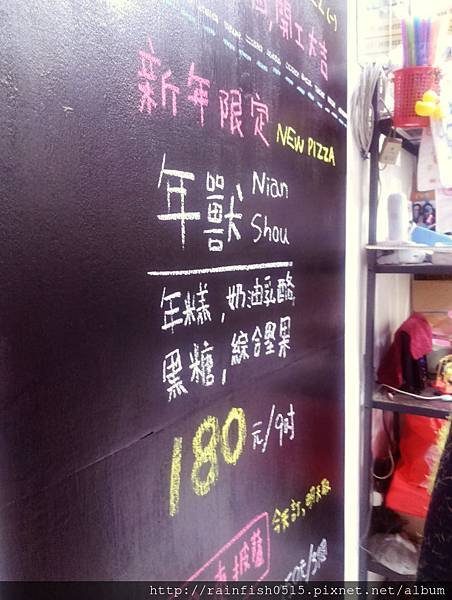 開工大吉
新年限定
NEW PIZZA
年獸
Nian
Shou
年糕,奶油乳酪
黑糖,綜合堅果
180元/9吋
披薩
http://rainfish0515.pixnet.net/album